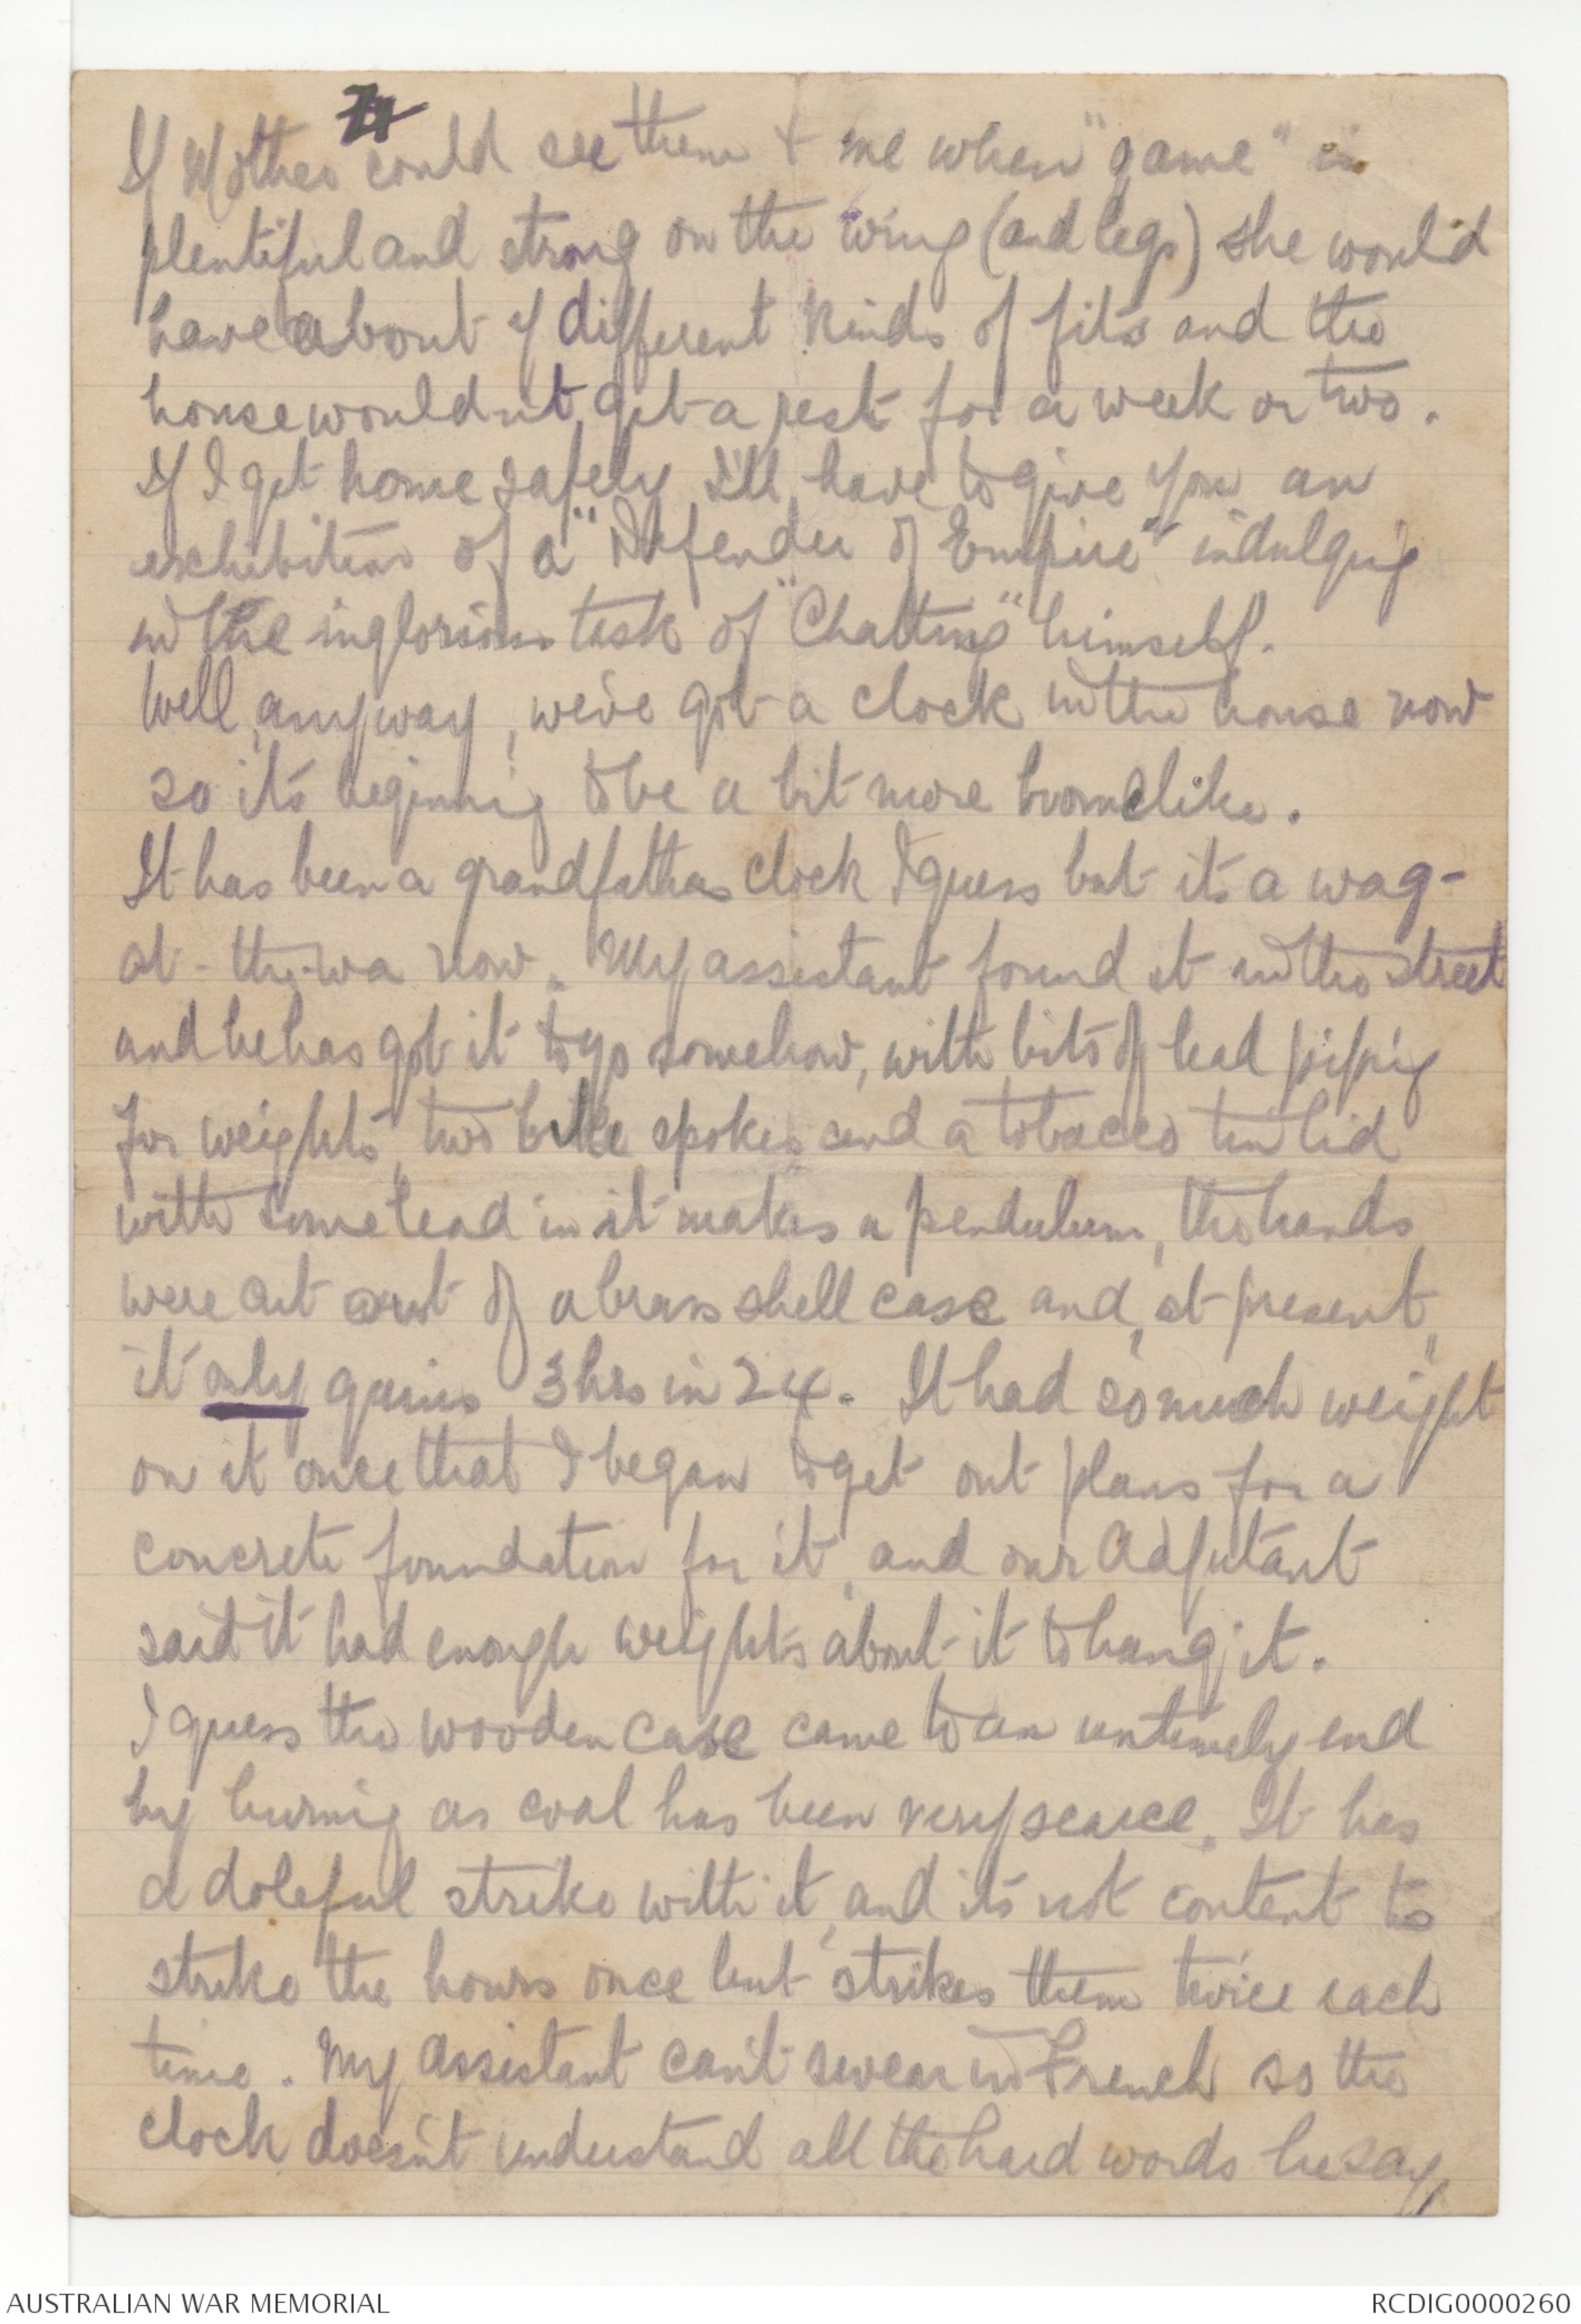 If Mother could see them & me when "game" is
plentiful and strong on the wing (and legs) she would
have about 7 different kinds of fits and the
house wouldnt get a rest for a week or two.
If I get home safely I'll have to give you an
exhibition of a "Defender of Empire" indulging
in the inglorious task of "Chatting" himself.
Well, anyway, we've got a clock in the house now
so it's beginning to be a bit more homelike.
It has been a grandfathers clock I guess but its a wag-
at-the-wa now. My assistant found it in the street
and he has got it to go somehow, with bits of lead piping
for weights, two bike spokes and a tobacco tin lid
with some lead in it makes a pendulum, the hands
were cut out of a brass shell case and, at present,
it only gains 3 hrs in 24. It had so much weight
on it once that I began to get out plans for a
concrete foundation for it, and our Adjutant
said it had enough weights about it to hang it.
I guess the wooden case came to an untimely end
by burning as coal has been very scarce. It has
a doleful strike with it, and its not content to
strike the hours once but strikes them twice each
time. My assistant can't swear in French so the
clock doesn't understand all the hard words he say,
AUSTRALIAN WAR MEMORIAL
RCDIG0000260